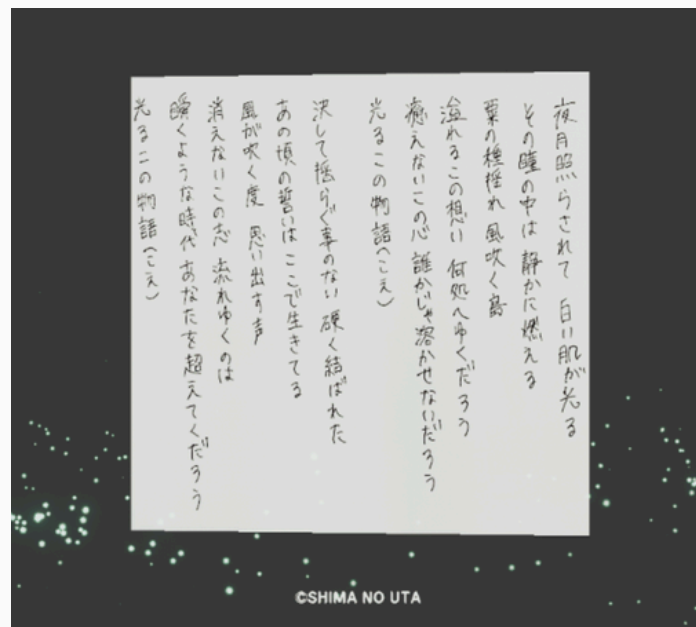 夜月照らされて 白い肌が光る
その瞳の中は 静かに燃える
粟の種揺れ 風吹く島
溢れるこの想い 何処へゆくだろう
癒えないこの心 誰かじゃ溶かせないだろう
光るこの物語(こえ)
決して揺らぐ事のない 硬く結ばれた
あの頃の誓いは ここで生きてる
風が吹く度 思い出す声
消えないこの志 流れゆくのは
瞬くような時代 あなたを超えてくだろう
光るこの物語(こえ)
©SHIMA NO UTA